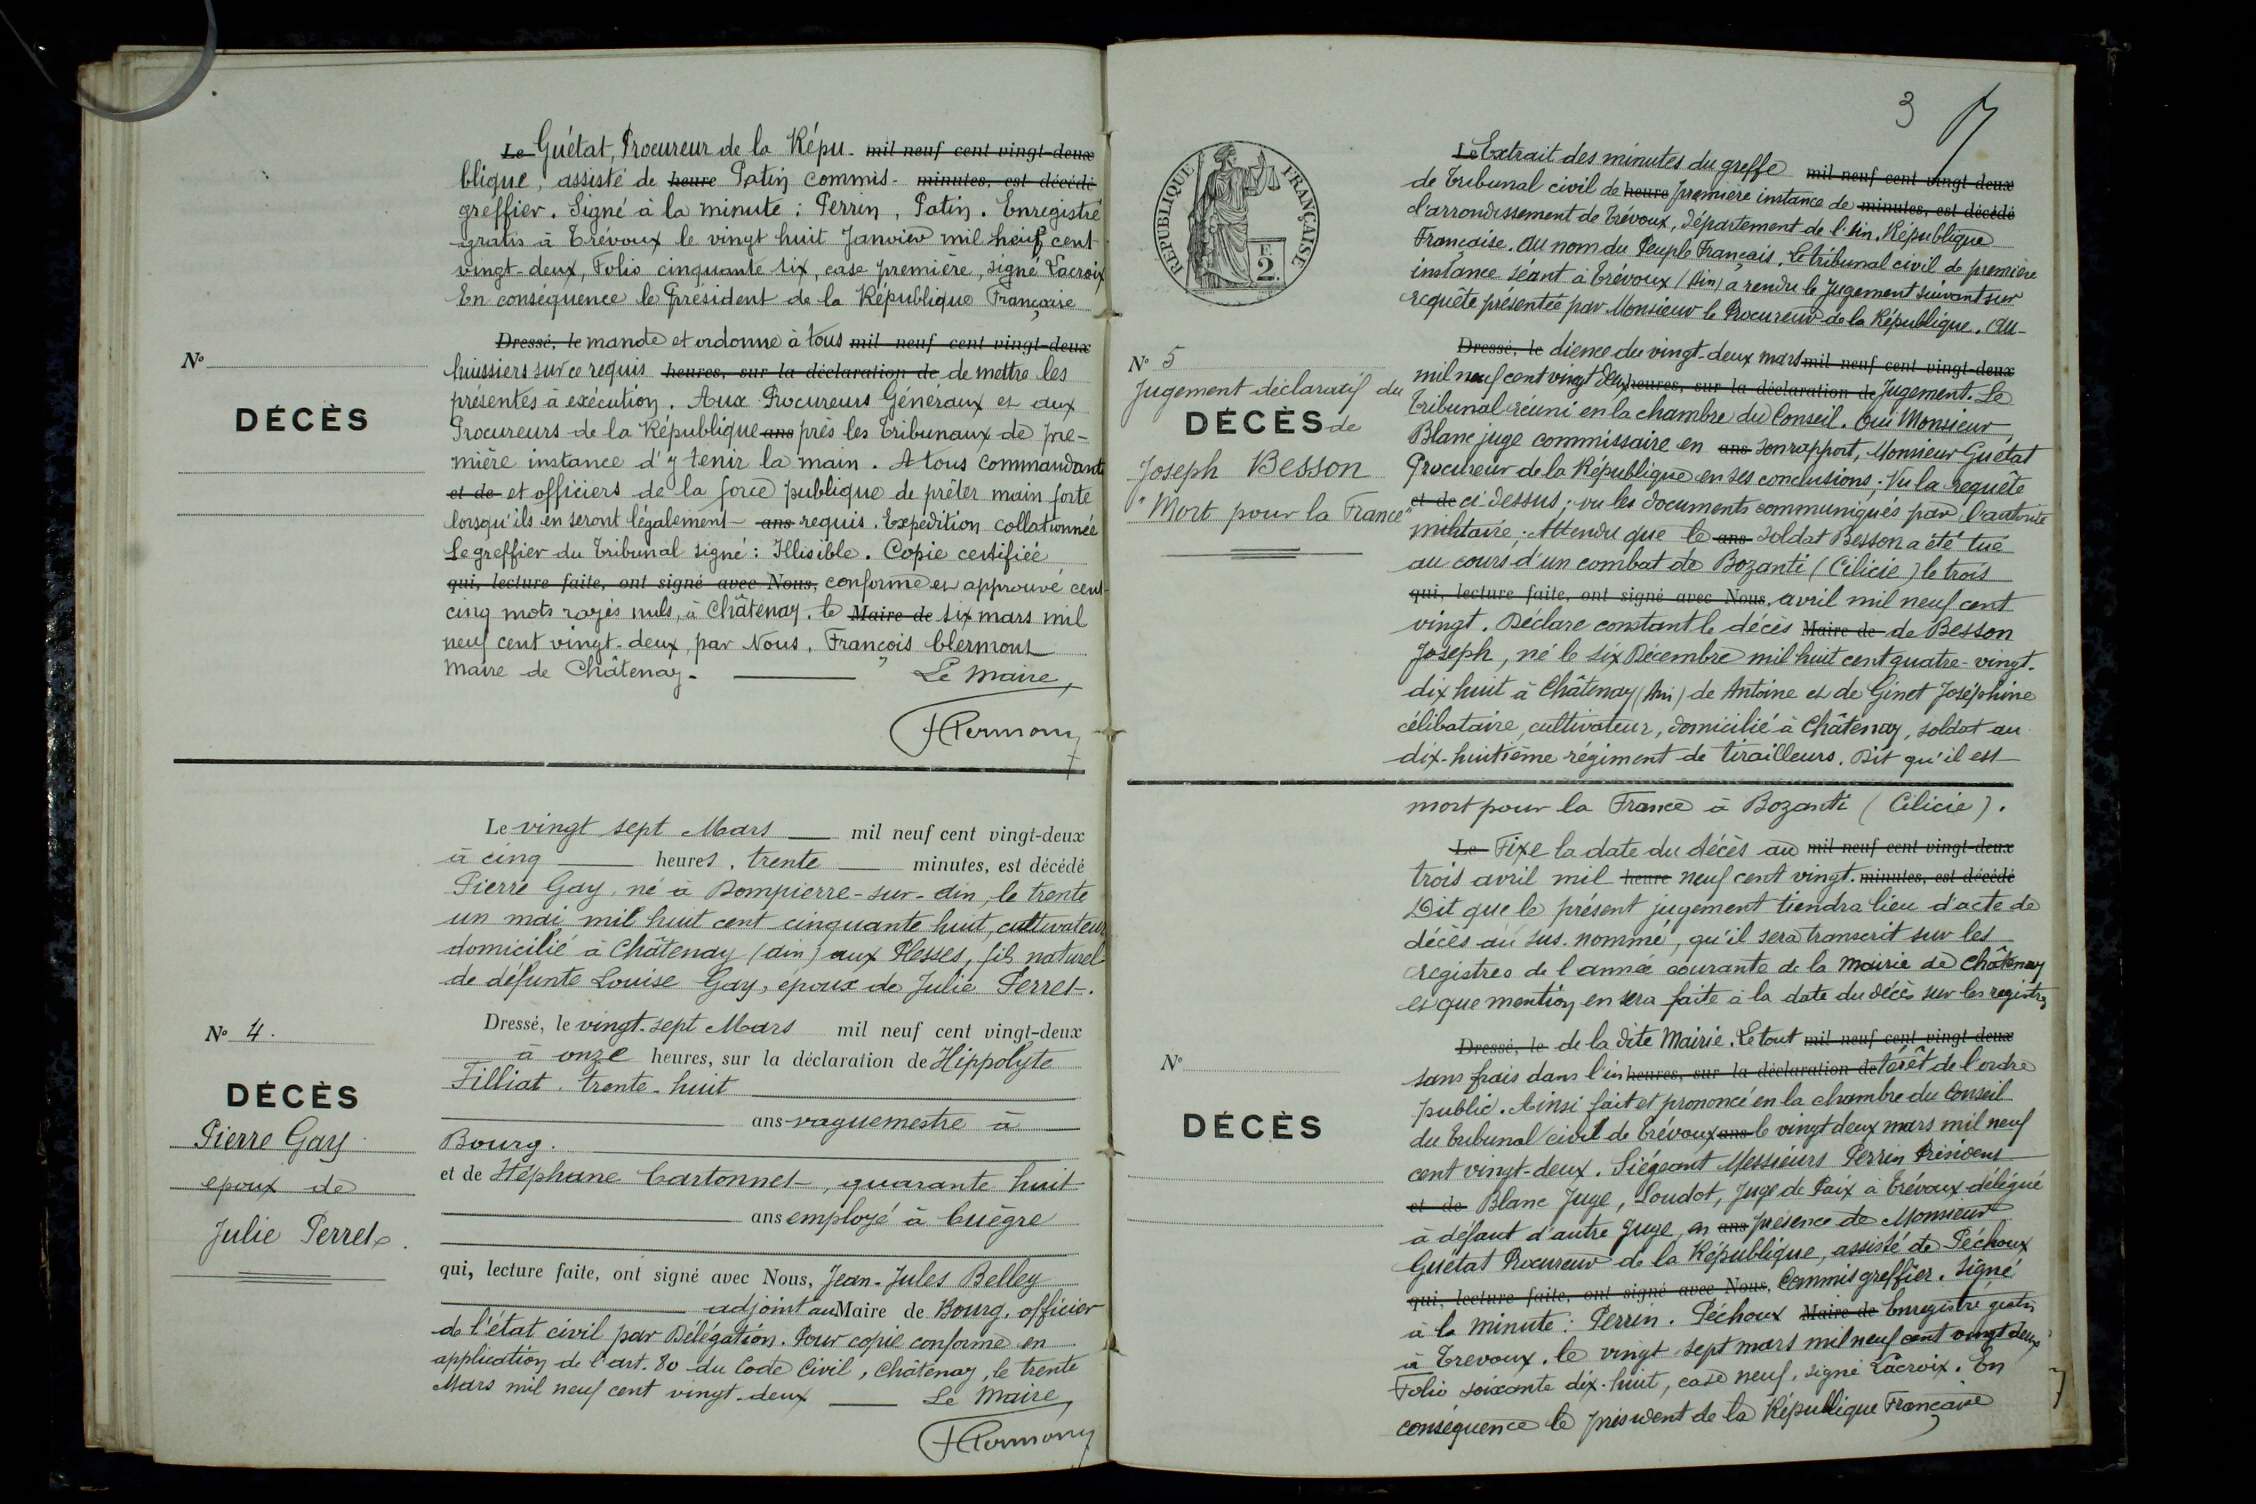 Le Guétat, Procureur de la Répu- mil neuf cent vingt-deux
blique, assisté de heure Patin commis- minutes, est décédé
greffier. Signé à la minute : Perrin, Patin. Enregistré
gratis à Trévoux le vingt huit Janvier mil neuf cent
vingt-deux, Folio cinquante six, case première, signé Lacroix
En conséquence le Président de la République Française
Dressé, le mande et ordonne à tous mil neuf cent vingt-deux
huissiers sur ce requis heures, sur la déclaration de de mettre les
présentes à exécution. Aux Procureurs Généraux et aux
Procureurs de la République ans près les Tribunaux de pre-
mière instance d'y tenir la main. A tous commandants
et de et officiers de la force publique de prêter main forte
lorsqu'ils en seront légalement - ans requis. Expédition collationnée
Le greffier du Tribunal signé : Illisible. Copie certifiée
qui, lecture faite, ont signé avec Nous, conforme et approuvé cent
cinq mots rayés nuls, à Châtenay, le Maire de six mars mil
neuf cent vingt-deux, par Nous, François Clermont
Maire de Châtenay.
Le Maire,
FClermont
N°
DÉCÈS
Le vingt sept Mars mil neuf cent vingt-deux
à cinq heures, trente minutes, est décédé
Pierre Gay, né à Dompierre-sur-Ain, le trente
un mai mil huit cent cinquante huit, cultivateur
domicilié à Châtenay (Ain) aux Plesses, fils naturel
de défunte Louise Gay, époux de Julie Perret.
Dressé, le vingt-sept Mars mil neuf cent vingt-deux
à onze heures, sur la déclaration de Hippolyte
Filliat, trente-huit
ans vaguemestre à
Bourg.
et de Stéphane Cartonnet, quarante huit
ans employé à Cuègre
qui, lecture faite, ont signé avec Nous, Jean-Jules Belley
adjoint au Maire de Bourg, officier
de l'état civil par Délégation. Pour copie conforme en
application de l'art. 80 du Code Civil, Châtenay, le trente
Mars mil neuf cent vingt-deux
Le Maire,
FClermont
N° 4.
DÉCÈS
Pierre Gay
époux de
Julie Perret
3
RÉPUBLIQUE FRANÇAISE
F.
2.
N° 5
Jugement déclaratif du
DÉCÈS de
Joseph Besson
"Mort pour la France"
Le Extrait des minutes du greffe mil neuf cent vingt-deux
de Tribunal civil de heure première instance de minutes, est décédé
l'arrondissement de Trévoux, Département de l'Ain. République
Française. Au nom du Peuple Français. Le tribunal civil de première
instance séant à Trévoux (Ain) a rendu le Jugement suivant sur
requête présentée par Monsieur le Procureur de la République. Au-
Dressé, le dience du vingt-deux mars mil neuf cent vingt-deux
mil neuf cent vingt deux heures, sur la déclaration de Jugement. Le
Tribunal réuni en la chambre du Conseil. Oui Monsieur
Blanc juge commissaire en ans son rapport, Monsieur Guétat
Procureur de la République en ses conclusions ; Vu la requête
et de ci-dessus ; vu les documents communiqués par l'autorité
militaire ; Attendu que le ans soldat Besson a été tué
au cours d'un combat de Bozanti (Cilicie) le trois
qui, lecture faite, ont signé avec Nous, avril mil neuf cent
vingt. Déclare constant le décès Maire de de Besson
Joseph, né le six Décembre mil huit cent quatre-vingt-
dix huit à Châtenay (Ain) de Antoine et de Ginet Joséphine
célibataire, cultivateur, domicilié à Châtenay, soldat au
dix-huitième régiment de tirailleurs. Dit qu'il est
mort pour la France à Bozanti (Cilicie).
Le Fixe la date du décès au mil neuf cent vingt-deux
trois avril mil heure neuf cent vingt. minutes, est décédé
Dit que le présent jugement tiendra lieu d'acte de
décès au sus-nommé, qu'il sera transcrit sur les
registres de l'année courante de la Mairie de Châtenay
et que mention en sera faite à la date du décès sur les registres
Dressé, le de la dite Mairie. Le tout mil neuf cent vingt-deux
sans frais dans l'in heures, sur la déclaration de térêt de l'ordre
public. Ainsi fait et prononcé en la chambre du Conseil
du Tribunal civil de Trévoux ans le vingt deux mars mil neuf
cent vingt-deux. Siégeant Messieurs Perrin Président
et de Blanc Juge, Loudot, Juge de Paix à Trévoux délégué
à défaut d'autre Juge, en ans présence de Monsieur
Guétat Procureur de la République, assisté de Péchoux
qui, lecture faite, ont signé avec Nous, Commis greffier. Signé
à la minute : Perrin. Péchoux Maire de Enregistré gratis
à Trévoux, le vingt sept mars mil neuf cent vingt deux
Folio soixante dix-huit, case neuf, signé Lacroix. En
conséquence le président de la République Française
N°
DÉCÈS